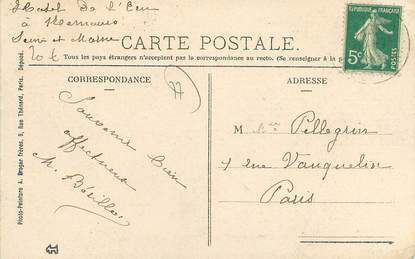 Hotel de l'Eau
à
Seine et Marne
20 €
CARTE POSTALE.
Tous les pays étrangers n'acceptent pas la correspondance au recto. (Se renseigner à la
CORRESPONDANCE
ADRESSE
77
Souvenir bien
affectueux
M.
M Pellegrin
7 rue Vauquelin
Paris
REPUBLIQUE FRANCAISE
5c
Photo-Peinture A. Breger Frères, 9, Rue Thénard, Paris. Déposé.